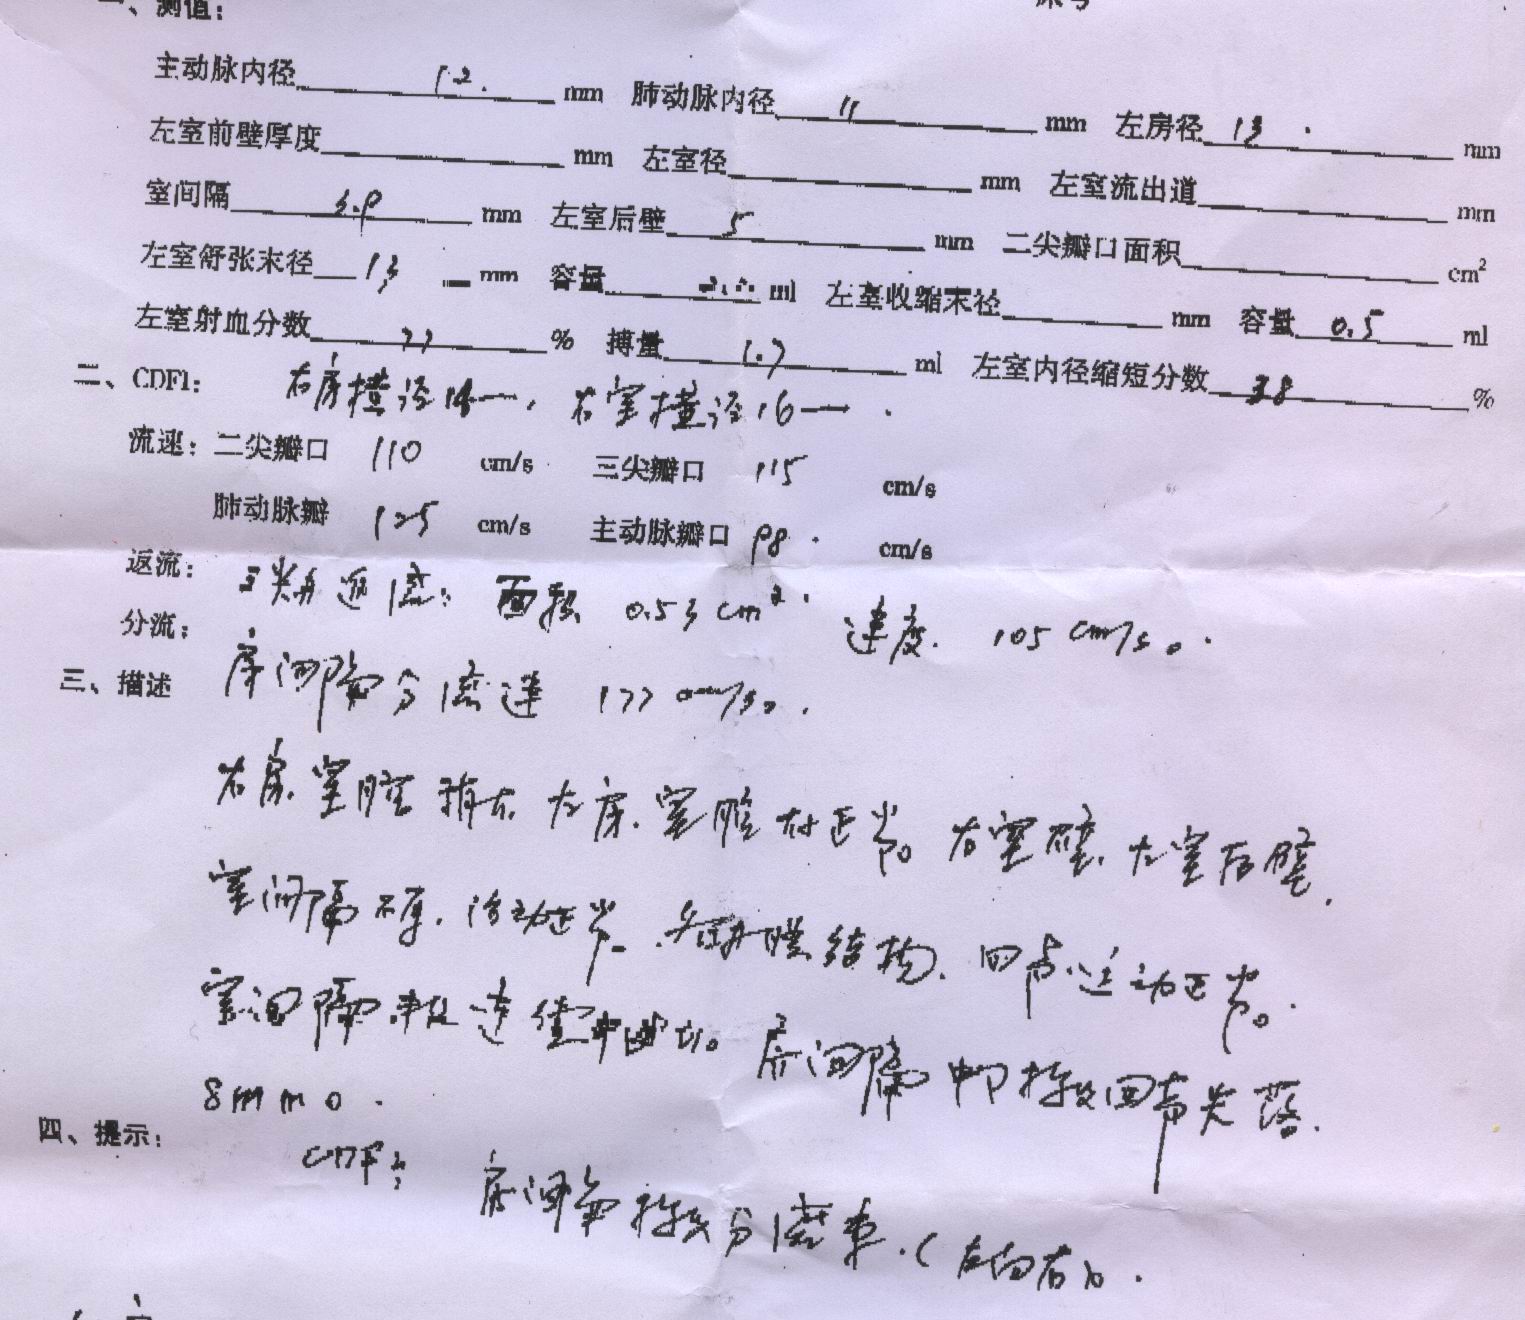 一、测值：
主动脉内径 12. mm 肺动脉内径 11 mm 左房径 13. mm
左室前壁厚度 mm 左室径 mm 左室流出道 mm
室间隔 3.9 mm 左室后壁 5 mm 二尖瓣口面积 cm²
左室舒张末径 13 mm 容量 ml 左室收缩末径 mm 容量 0.5 ml
左室射血分数 77 % 搏量 1.7 ml 左室内径缩短分数 38 %
二、CDFI: 右房横径18mm, 右室横径16mm.
流速：二尖瓣口 110 cm/s 三尖瓣口 115 cm/s
肺动脉瓣 125 cm/s 主动脉瓣口 98. cm/s
返流：三尖瓣返流: 面积 0.53 cm². 速度. 105 cm/s。
分流：房间隔分流速 177 cm/s。
三、描述
右房.室腔稍大.左房.室腔大小正常。右室壁.左室后壁.
室间隔不厚.活动正常。各瓣膜结构.回声.运动正常。
室间隔连续 房间隔中部探及回声失落.
8mm。
四、提示：
CDFI: 房间隔探及分流束.(左向右).